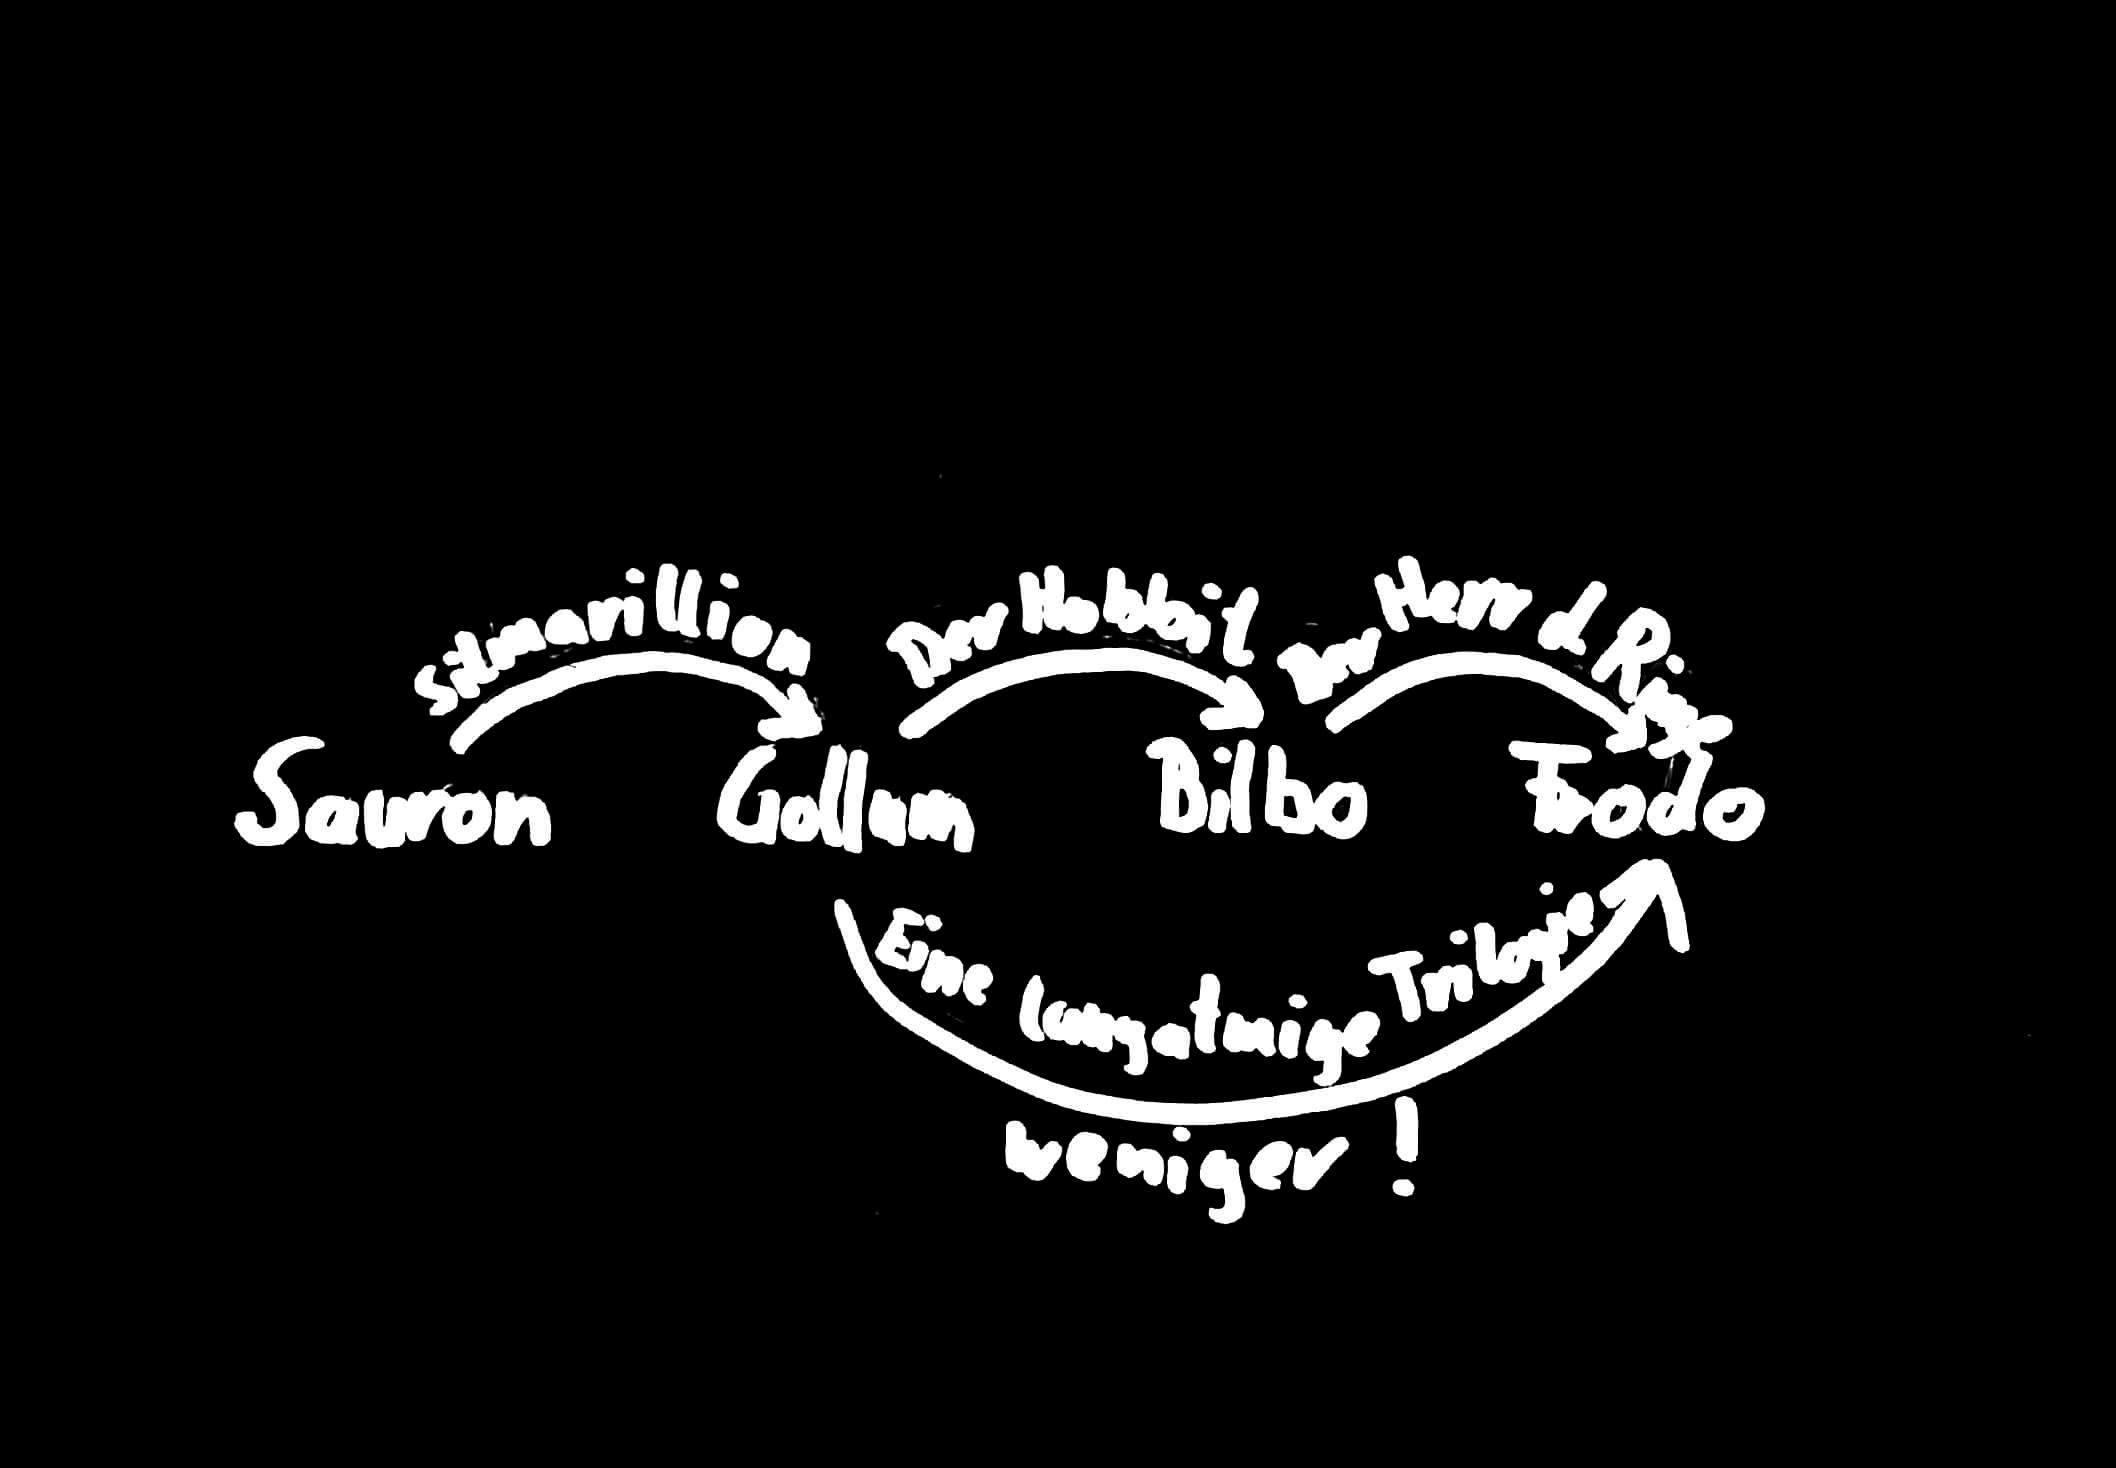 Silmarillion
Der Hobbit
Der Herr d Ringe
Sauron Gollum Bilbo Frodo
Eine langatmige Trilogie
weniger!